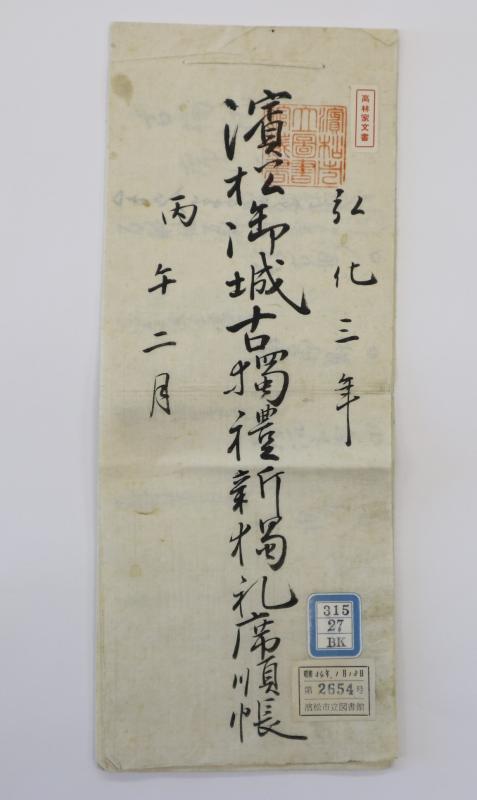 高林家文書
濱松市
立圖書
弘化三年
濱松御城古獨禮新獨礼席順帳
丙午二月
315
27
BK
第2654号
浜松市立図書館